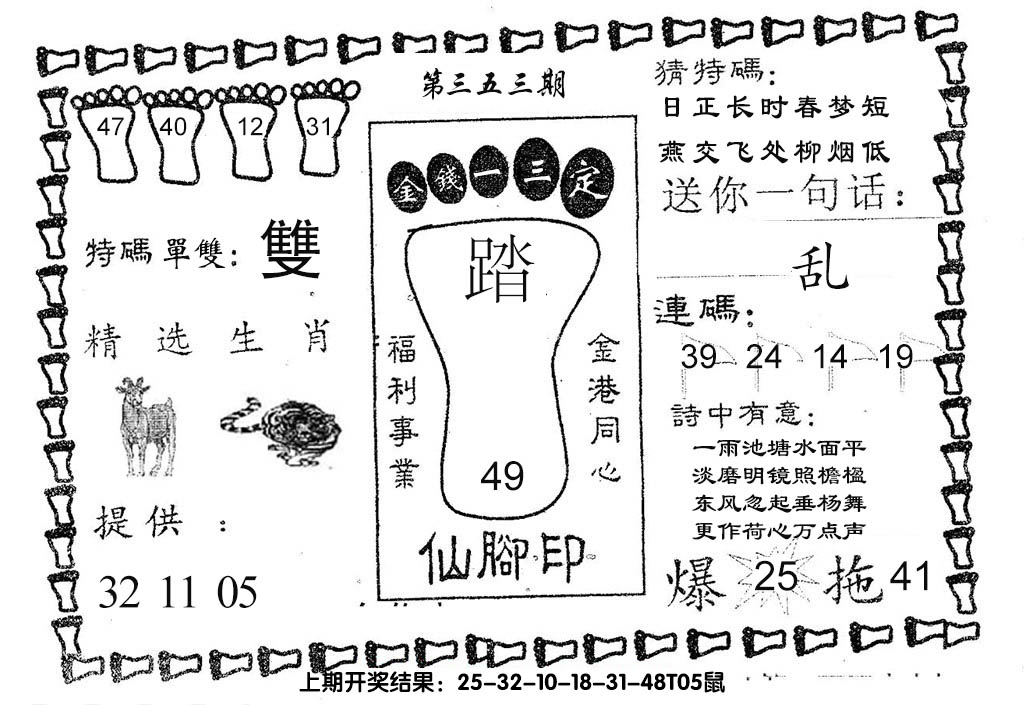 第三五三期
47 40 12 31
特碼單雙: 雙
精选生肖
提供:
32 11 05
金錢一三定
踏
福利事業
金港同心
49
仙腳印
猜特碼:
日正长时春梦短
燕交飞处柳烟低
送你一句话:
乱
連碼:
39 24 14 19
詩中有意:
一雨池塘水面平
淡磨明镜照檐楹
东风忽起垂杨舞
更作荷心万点声
爆 25 拖 41
上期开奖结果: 25-32-10-18-31-48T05鼠